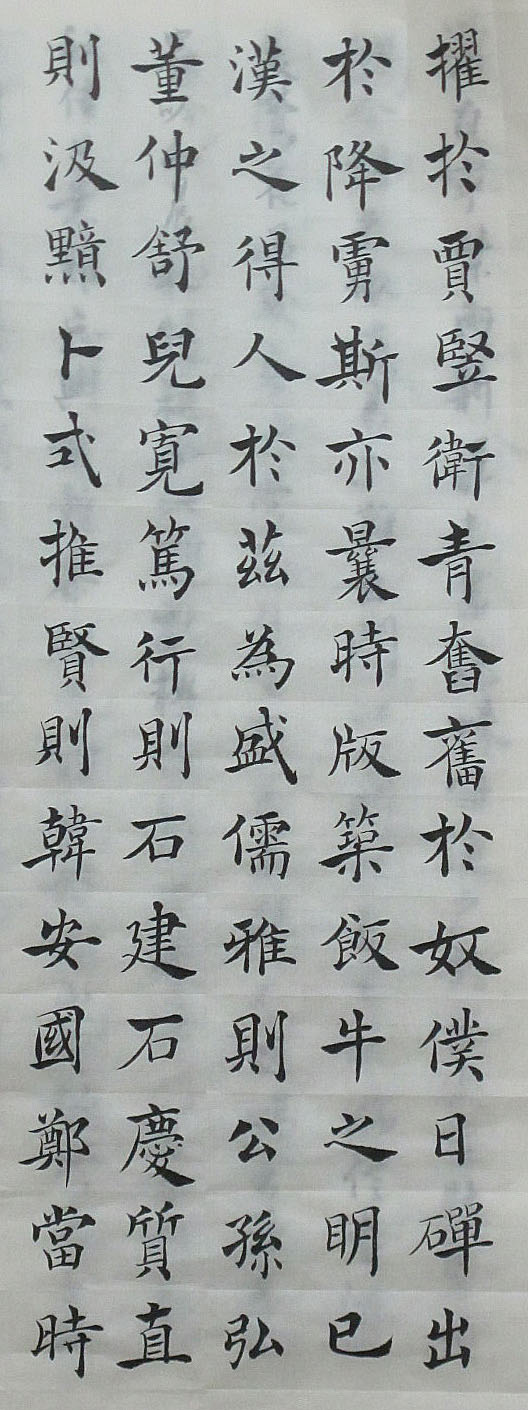 擢於賈豎衛青奮於奴僕日磾出
於降虜斯亦曩時版築飯牛之眀已
漢之得人於茲為盛儒雅則公孫弘
董仲舒兒寬篤行則石建石慶質直
則汲黯卜式推賢則韓安國鄭當時